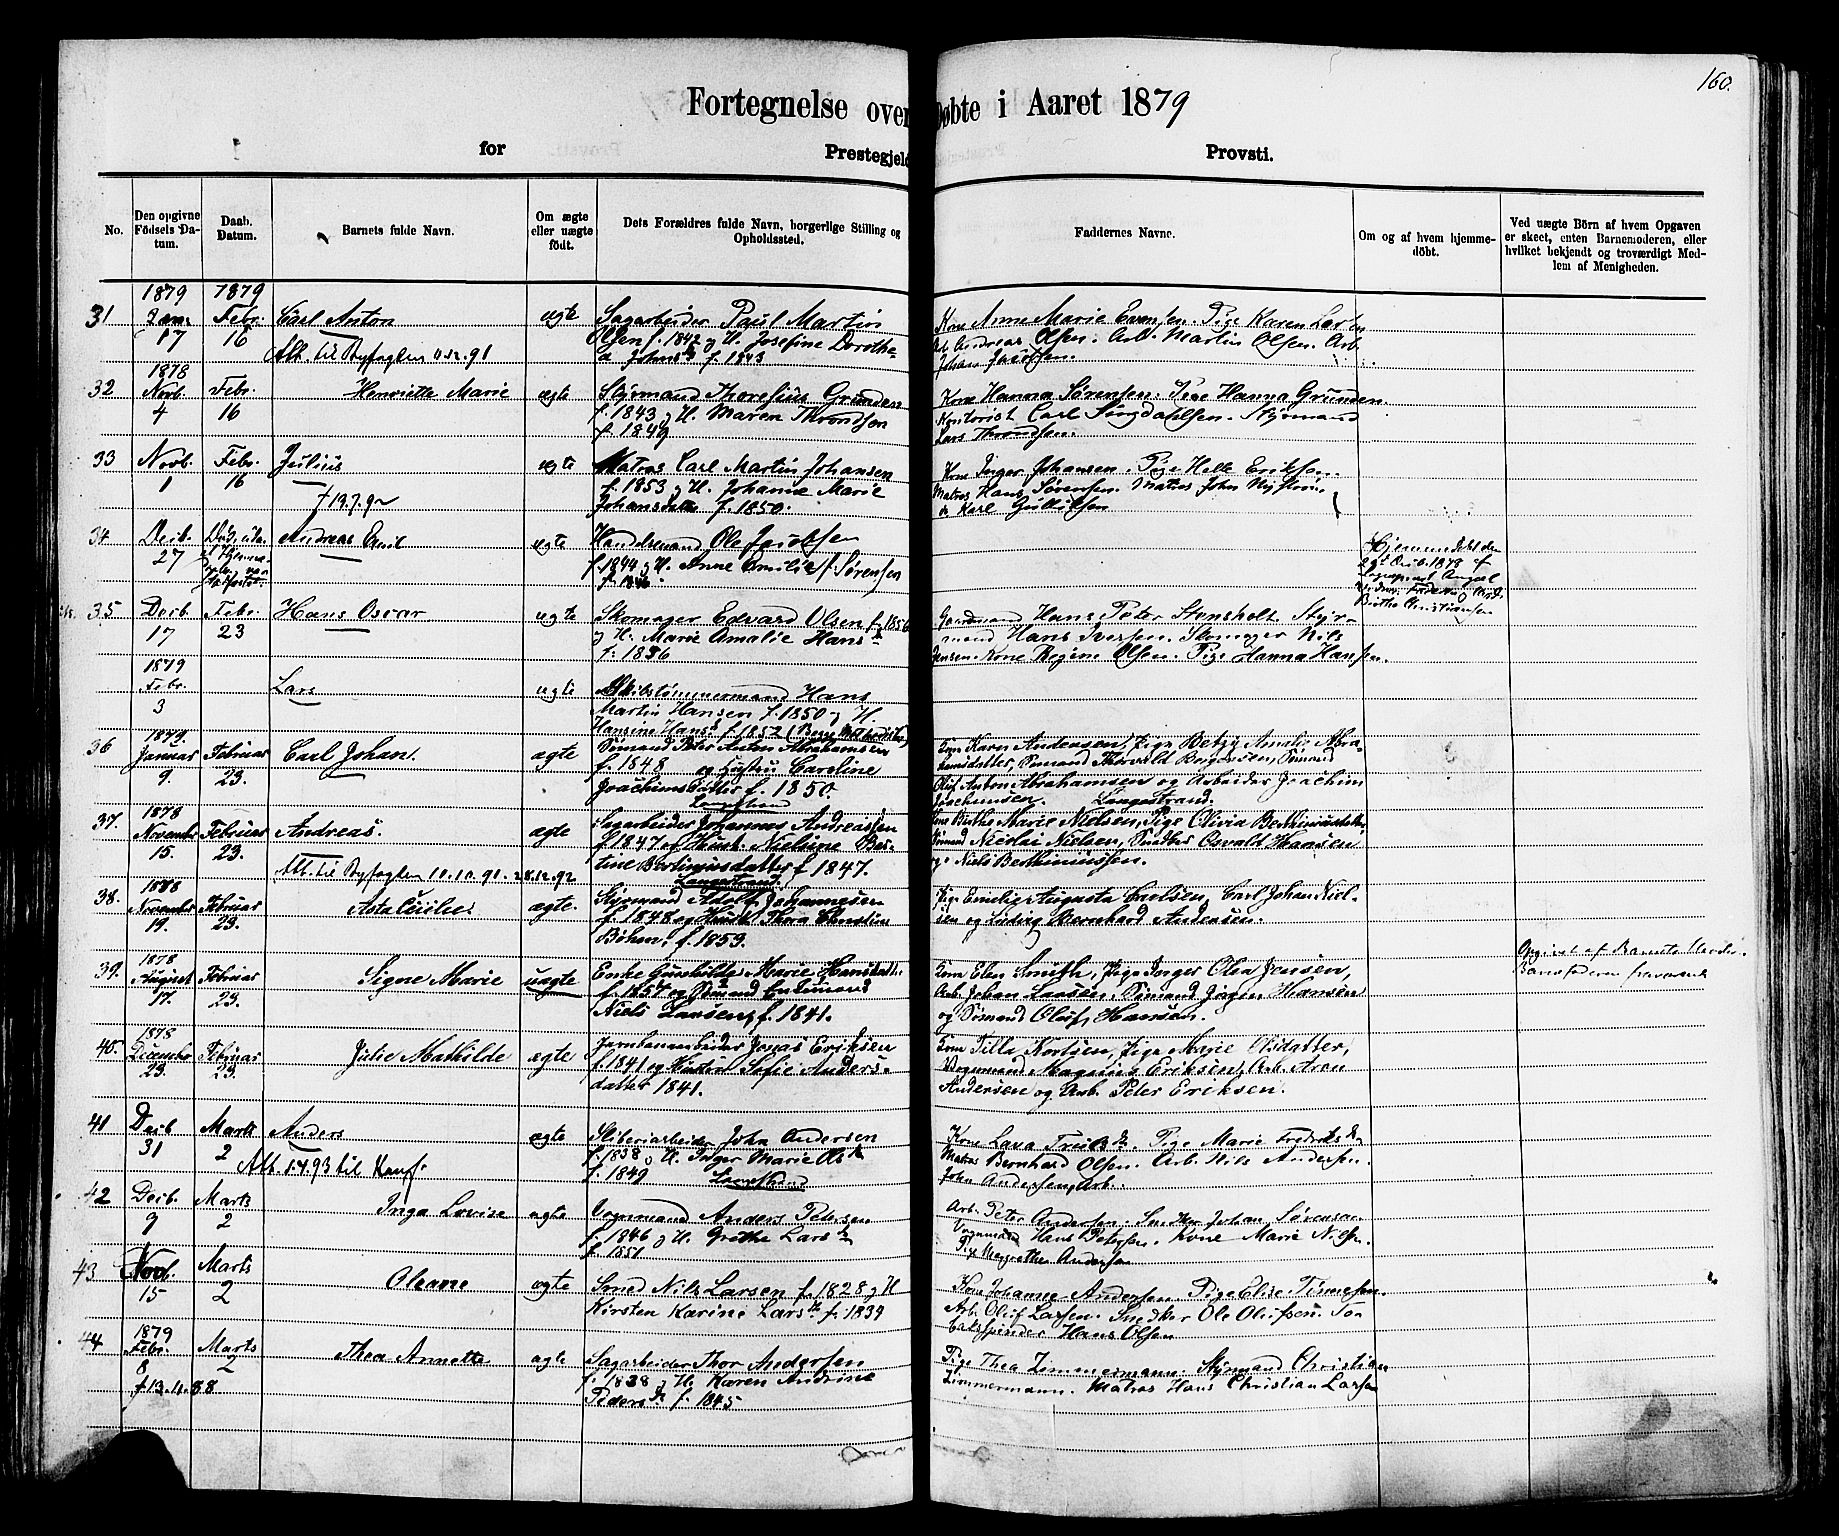 160.
Fortegnelse over Døbte i Aaret 1879
for Prestegjeld Provsti.
No.
Den opgivne Födsels Datum.
Daab. Datum.
Barnets fulde Navn.
Om ægte eller uægte födt.
Dets Forældres fulde Navn, borgerlige Stilling og Opholdssted.
Faddernes Navne.
Om og af hvem hjemmedöbt.
Ved uægte Börn af hvem Opgaven er skeet, enten Barnemoderen, eller hvilket bekjendt og troværdigt Medlem af Menigheden.
1879 1879
31 Jan. 17 Febr. 16 Carl Anton ægte Sagarbeider Paul Martin
Olsen f. 1842 og H. Josefine Dorothe-
a Johnsd. f. 1843
Att. til Byfogden
Kone Anne Marie Evensen. Pige Karen Larsen
Arb. Andreas Olsen. Arb. Martin Olsen. Arb.
Johan Jacobsen.
1878
32 Novb. 4 Febr. 16 Henriette Marie ægte Styrmand Thoresius Grunden
f. 1843 og H. Maren Throndsen
f. 1849
Kone Hanna Sørensen. Pige Hanna Grunden.
Kontorist Carl Styrmand
Lars Throndsen.
33 Novb. 1 Febr. 16 Julius ægte Matros Carl Martin Johansen
f. 1853 og H. Johanne Marie
Johansdatter f. 1850.
† 13.7.92
Kone Inger Johansen. Pige Helle Eriksen.
Matros Hans Sørensen. Matros John
do Karl Gulliksen
34 Decb. 27 Andreas Emil ægte Handelsmand Ole Jacobsen
f. 1844 og H. Anne Emilie Sørensen
Hjemmedøbt den
35 Decb. 17 Febr. 23 Hans Oscar ægte Skomager Edvard Olsen f. 1856
og H. Marie Amalie Hansd.
f. 1856
Gaardmand Hans Peter Stensholt. Styr-
mand Hans Iversen. Skomager Nils
Jensen. Kone Regine Olsen. Pige Hanna Hansen.
1879
Febr. 3 Lars ægte Skibstømmermand Hans
Martin Hansen f. 1850 og H.
Hansine Hansd. f. 1852
1879.
36 Januar 9 Februar 23. Carl Johan. ægte Sømand Peter Anton Abrahamsen
f. 1848 og Hustru Caroline
Joachimsdatter f. 1850.
Langestrand
Kone Karen Andersen, Pige Betzy Amalie Abra-
hamsdatter, Sømand Thorvald Sømand
Oluf Anton Abrahamsen og Arbeider Joachim
Joachimsen. Langestrand.
1878
37. November 15. Februar 23. Andreas. ægte Sagarbeider Johannes Andreassen
f. 1847 og Hustr. Nielsine Ber-
tine Bertiniusdatter f 1847.
Langestrand.
Att. til Byfogden 10.10.91.
Kone Birthe Marie Nielsen, Pige Olivia
Sømand Nicolai Nielsen, Snedker Osvald Hansen
og Niels Berthiniussen.
1878
38. November 19. Februar 23. Asta Cecilie. ægte. Styrmand Adolf Johannesen
f. 1848 og Hustr. Thora Christine
Böhm, f. 1853.
Pige Emilie Augusta Carlsen, Carl Johan Niel-
sen og Ludvig Bernhard Andersen.
1878
39. August 17. Februar 23. Signe Marie uægte Enke Gunhilde Marie Hansdatter
f. 1854 og Sømand
Niels Larsen, f. 1841.
Kone Elen Smith, Pige Inger Olea Jensen,
Arb. Johan Larsen, Sømand Jørgen Hansen
og Sømand Oluf Hansen.
Opgivet af Barnets Moder.
Barnefaderen fraværende
1878
40. December 23. Februar 23. Julie Mathilde ægte Jernbanearbeider Jonas Eriksen
f. 1841 og Hustru Sofie Anders-
datter 1841.
Kone Tilla Kortsen, Pige Marie Olsdatter,
Vognmand Magnus Eriksen, Arb. Aren
Andersen og Arb. Peter Eriksen.
41 Decb 31 Marts 2 Anders ægte Sliberiarbeider John Andersen
f. 1838 og H. Inger Marie Olsd.
f. 1849 Langestrand
Att. 1.4.93 til Konf.
Kone Lava Trulsd. Pige Marie Fredriksd.
Matros Bernhard Olsen. Arb. Nils Andersen.
John Andersen, Arb.
42 Decb. 9 Marts 2 Inga Lovise ægte Vognmand Anders Petersen
f. 1846 og H. Grethe Larsd.
f. 1851
Arb. Peter Andersen. Snedker Johan Sørensen
Vognmand Hans Petersen. Kone Marie Nilsen.
Pige Margrethe Andersen
43 Novb. 15 Marts 2 Oleane ægte Smed Nils Larsen f. 1828 og H
Kirsten Karine Larsd. f. 1839
Kone Johanne Andersen Pige Elise
Arb. Oluf Larsen. Snedker Ole Olufsen. To-
bakspinder Hans Olsen
1879
44 Febr. 8 Marts 2 Thea Annette ægte Sagarbeider Thor Andersen
f. 1838 og H. Karen Andrine
Pedersd. f. 1845
† 13.4.88
Pige Thea Zimmermann. Styrmand Christian
Zimmermann. Matros Hans Christian Larsen